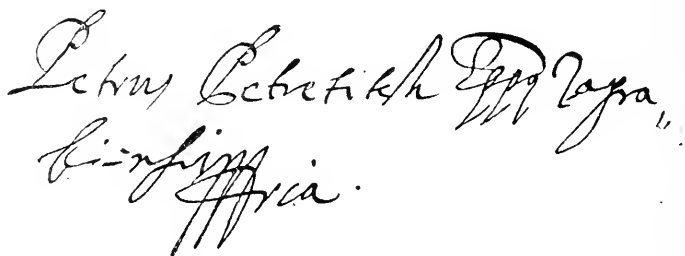 Petrus Petretitsh Eppq Zagra„
biensis mpria.